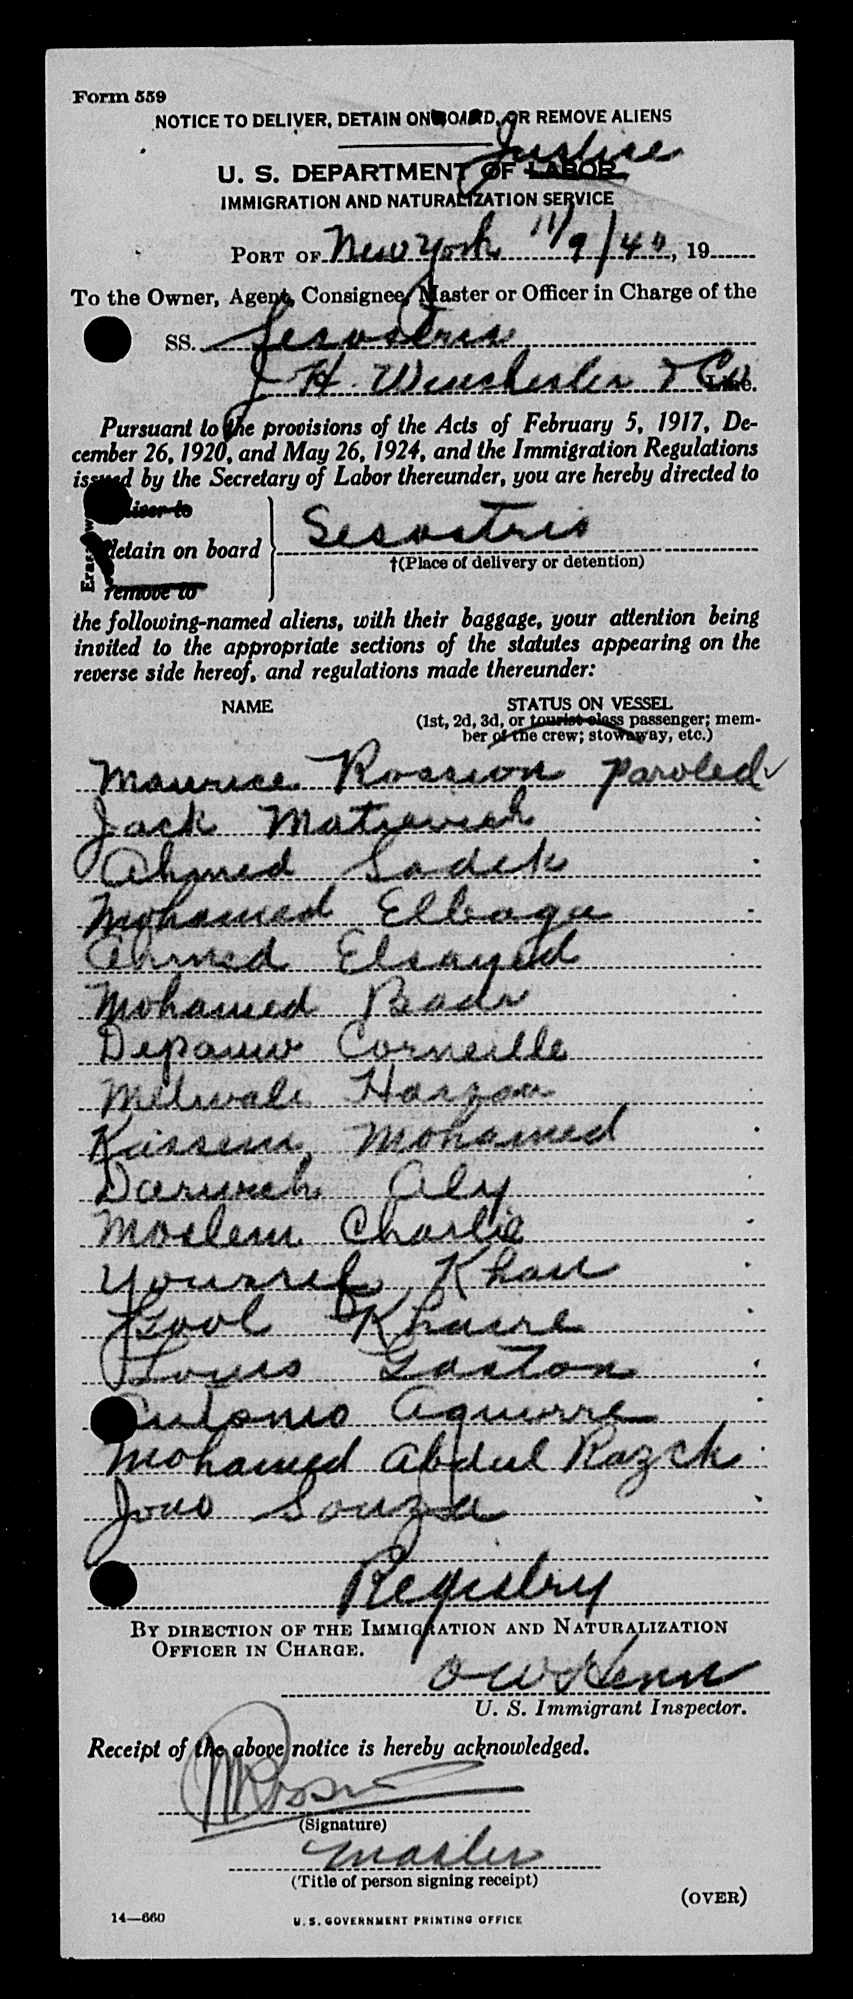 Form 559
NOTICE TO DELIVER, DETAIN ON BOARD, OR REMOVE ALIENS
Justice
U. S. DEPARTMENT OF LABOR
IMMIGRATION AND NATURALIZATION SERVICE
PORT OF New York 11/9/40, 19
To the Owner, Agent, Consignee, Master or Officer in Charge of the
SS. Sesostris
J H. Winchester & Co Line.
Pursuant to the provisions of the Acts of February 5, 1917, De-
cember 26, 1920, and May 26, 1924, and the Immigration Regulations
issued by the Secretary of Labor thereunder, you are hereby directed to
deliver to
detain on board Sesostris
†(Place of delivery or detention)
remove to
the following-named aliens, with their baggage, your attention being
invited to the appropriate sections of the statutes appearing on the
reverse side hereof, and regulations made thereunder:
NAME STATUS ON VESSEL
(1st, 2d, 3d, or tourist class passenger; mem-
ber of the crew; stowaway, etc.)
Maurice Rossion Paroled ✓
Jack Matrovich
Ahmed Sadek
Mohamed Elbaga
Ahmed Elsayed
Mohamed Badr
Depauw Corneille
Metwali Hassan
Kassem, Mohamed
Darwich Aly
Moslem Charlie
Youssef Khan
Gool Khaire
Louis Gaston
Antonio Aguirre
Mohamed Abdul Razck
Joao Souza
Registry
BY DIRECTION OF THE IMMIGRATION AND NATURALIZATION
OFFICER IN CHARGE.
O W Henn
U. S. Immigrant Inspector.
Receipt of the above notice is hereby acknowledged.
(Signature)
Master
(Title of person signing receipt)
(OVER)
14—660
U. S. GOVERNMENT PRINTING OFFICE